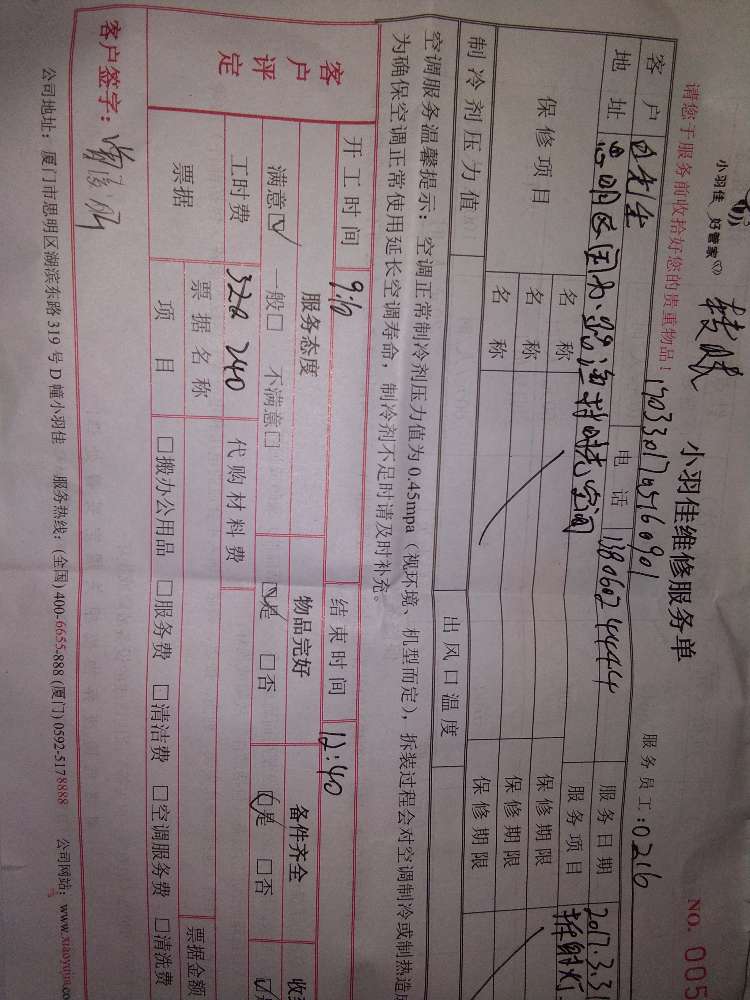 小羽佳 好管家
小羽佳维修服务单
NO. 005
请您于服务前收拾好您的贵重物品！
服务员工：0216
客户
电话 13806024444
服务日期 2017.3.31
地址
服务项目 拆射灯
保修项目
名称
保修期限
名称
保修期限
名称
保修期限
制冷剂压力值
出风口温度
空调服务温馨提示：空调正常制冷剂压力值为0.45mpa（视环境、机型而定），拆装过程会对空调制冷或制热造成
为确保空调正常使用延长空调寿命，制冷剂不足时请及时补充。
开工时间 9:10
结束时间 12:40
客户评定
服务态度
物品完好
备件齐全
满意☑ 一般□ 不满意□
☑是 □否
☑是 □否
工时费 320 240
代购材料费
票据
票据名称
票据金额
项目
□搬办公用品 □服务费 □清洁费 □空调服务费 □清洗费
客户签字：
公司地址：厦门市思明区湖滨东路319号D幢小羽佳 服务热线：(全国)400-6655-888 (厦门)0592-5178888 公司网站：www.xiaoyujia.com